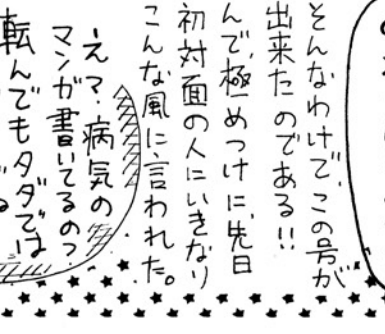 そんなわけで、この号が
出来たのである!!
んで、極めつけに、先日
初対面の人にいきなり
こんな風に言われた。
えマ、病気の
マンガ書いてるの?
転んでもタダでは